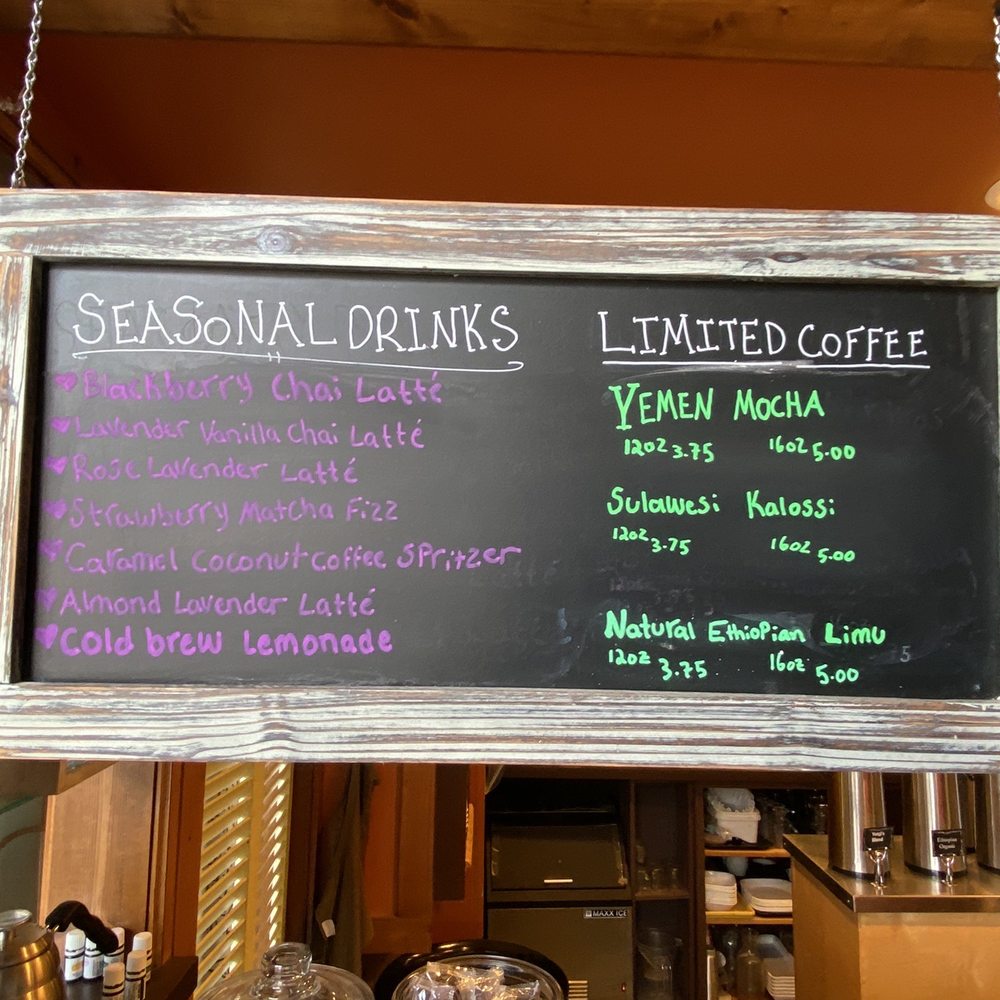 SEASONAL DRINKS
Blackberry Chai Latté
Lavender Vanilla Chai Latté
Rose Lavender Latté
Strawberry Matcha Fizz
Caramel Coconut coffee SPritzer
Almond Lavender Latté
Cold brew Lemonade
LIMITED COFFEE
YEMEN MOCHA
12oz 3.75 16oz 5.00
Sulawesi Kalossi
12oz 3.75 16oz 5.00
Natural EthioPian Limu
12oz 3.75 16oz 5.00
5
MAXX ICE
Ethiopian
Organic